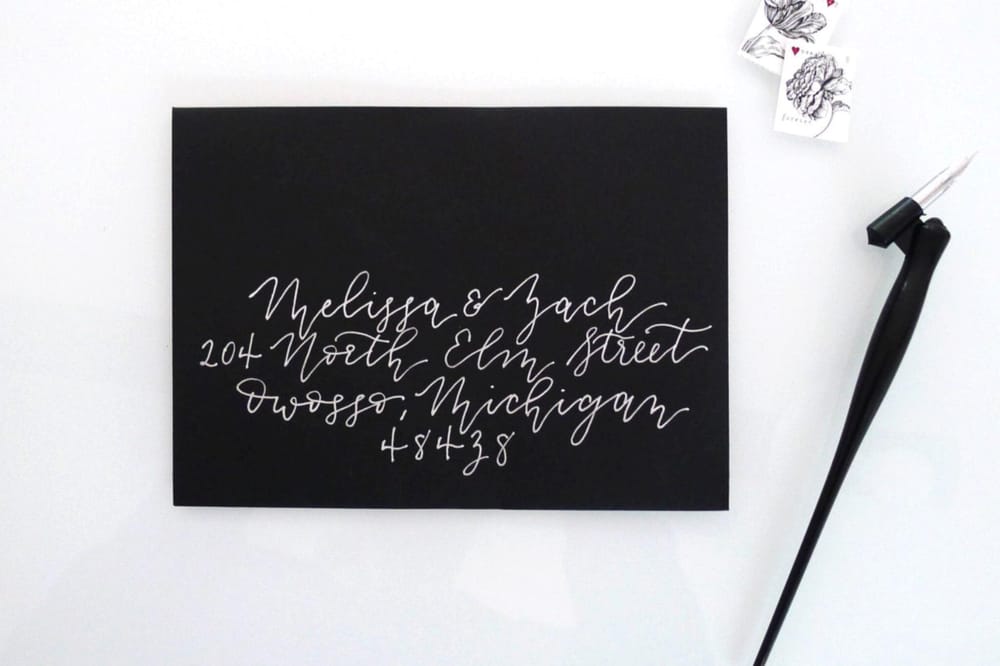 Melissa & Zach
204 North Elm Street
Owosso, Michigan
48438
forever